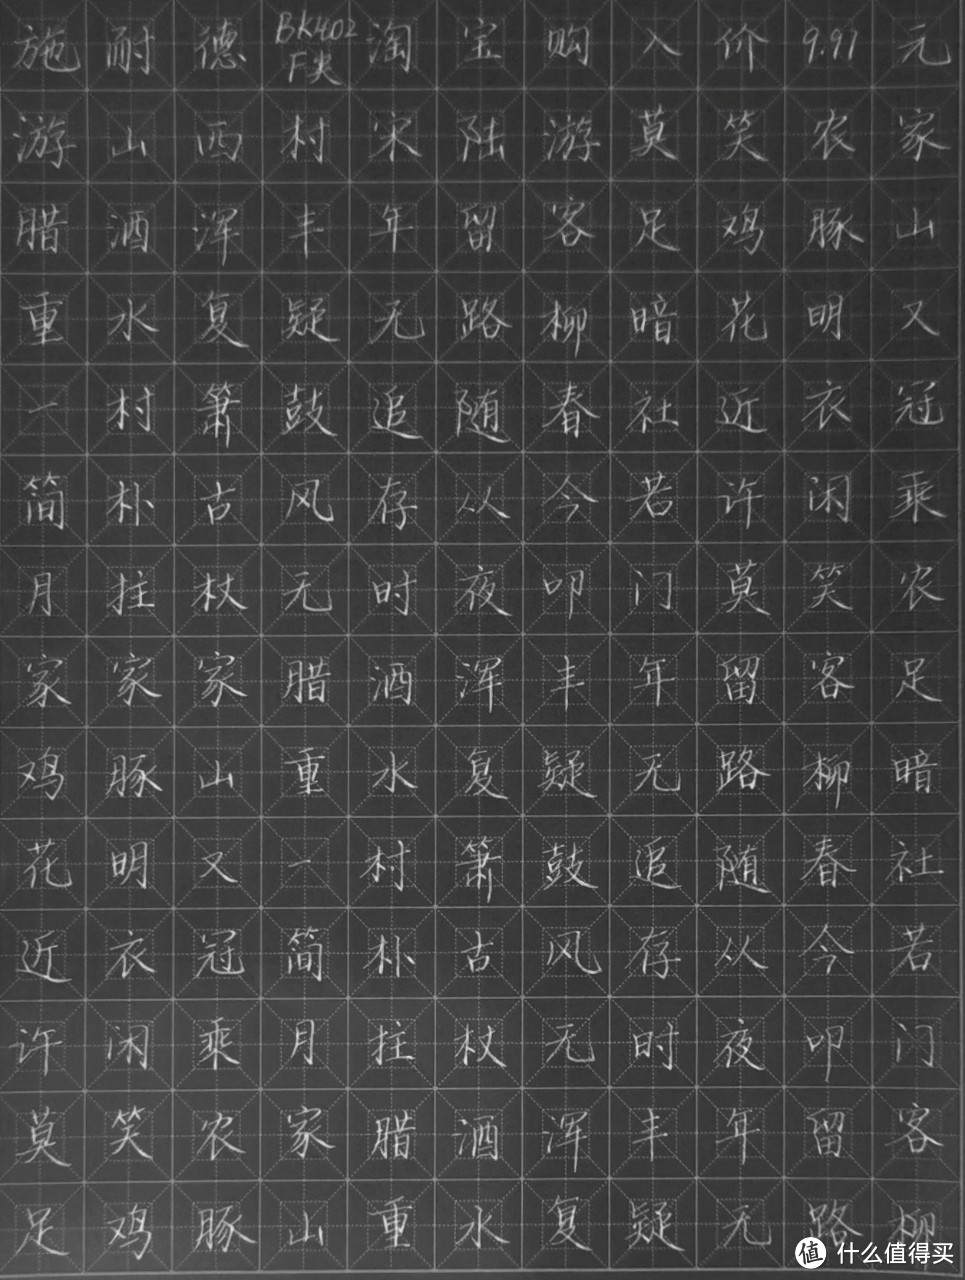 施耐德BK402F尖淘宝购入价9.91元
游山西村宋陆游莫笑农家
腊酒浑丰年留客足鸡豚山
重水复疑无路柳暗花明又
一村箫鼓追随春社近衣冠
简朴古风存从今若许闲乘
月拄杖无时夜叩门莫笑农
家家家腊酒浑丰年留客足
鸡豚山重水复疑无路柳暗
花明又一村箫鼓追随春社
近衣冠简朴古风存从今若
许闲乘月拄杖无时夜叩门
莫笑农家腊酒浑丰年留客
足鸡豚山重水复疑无路柳
值 什么值得买